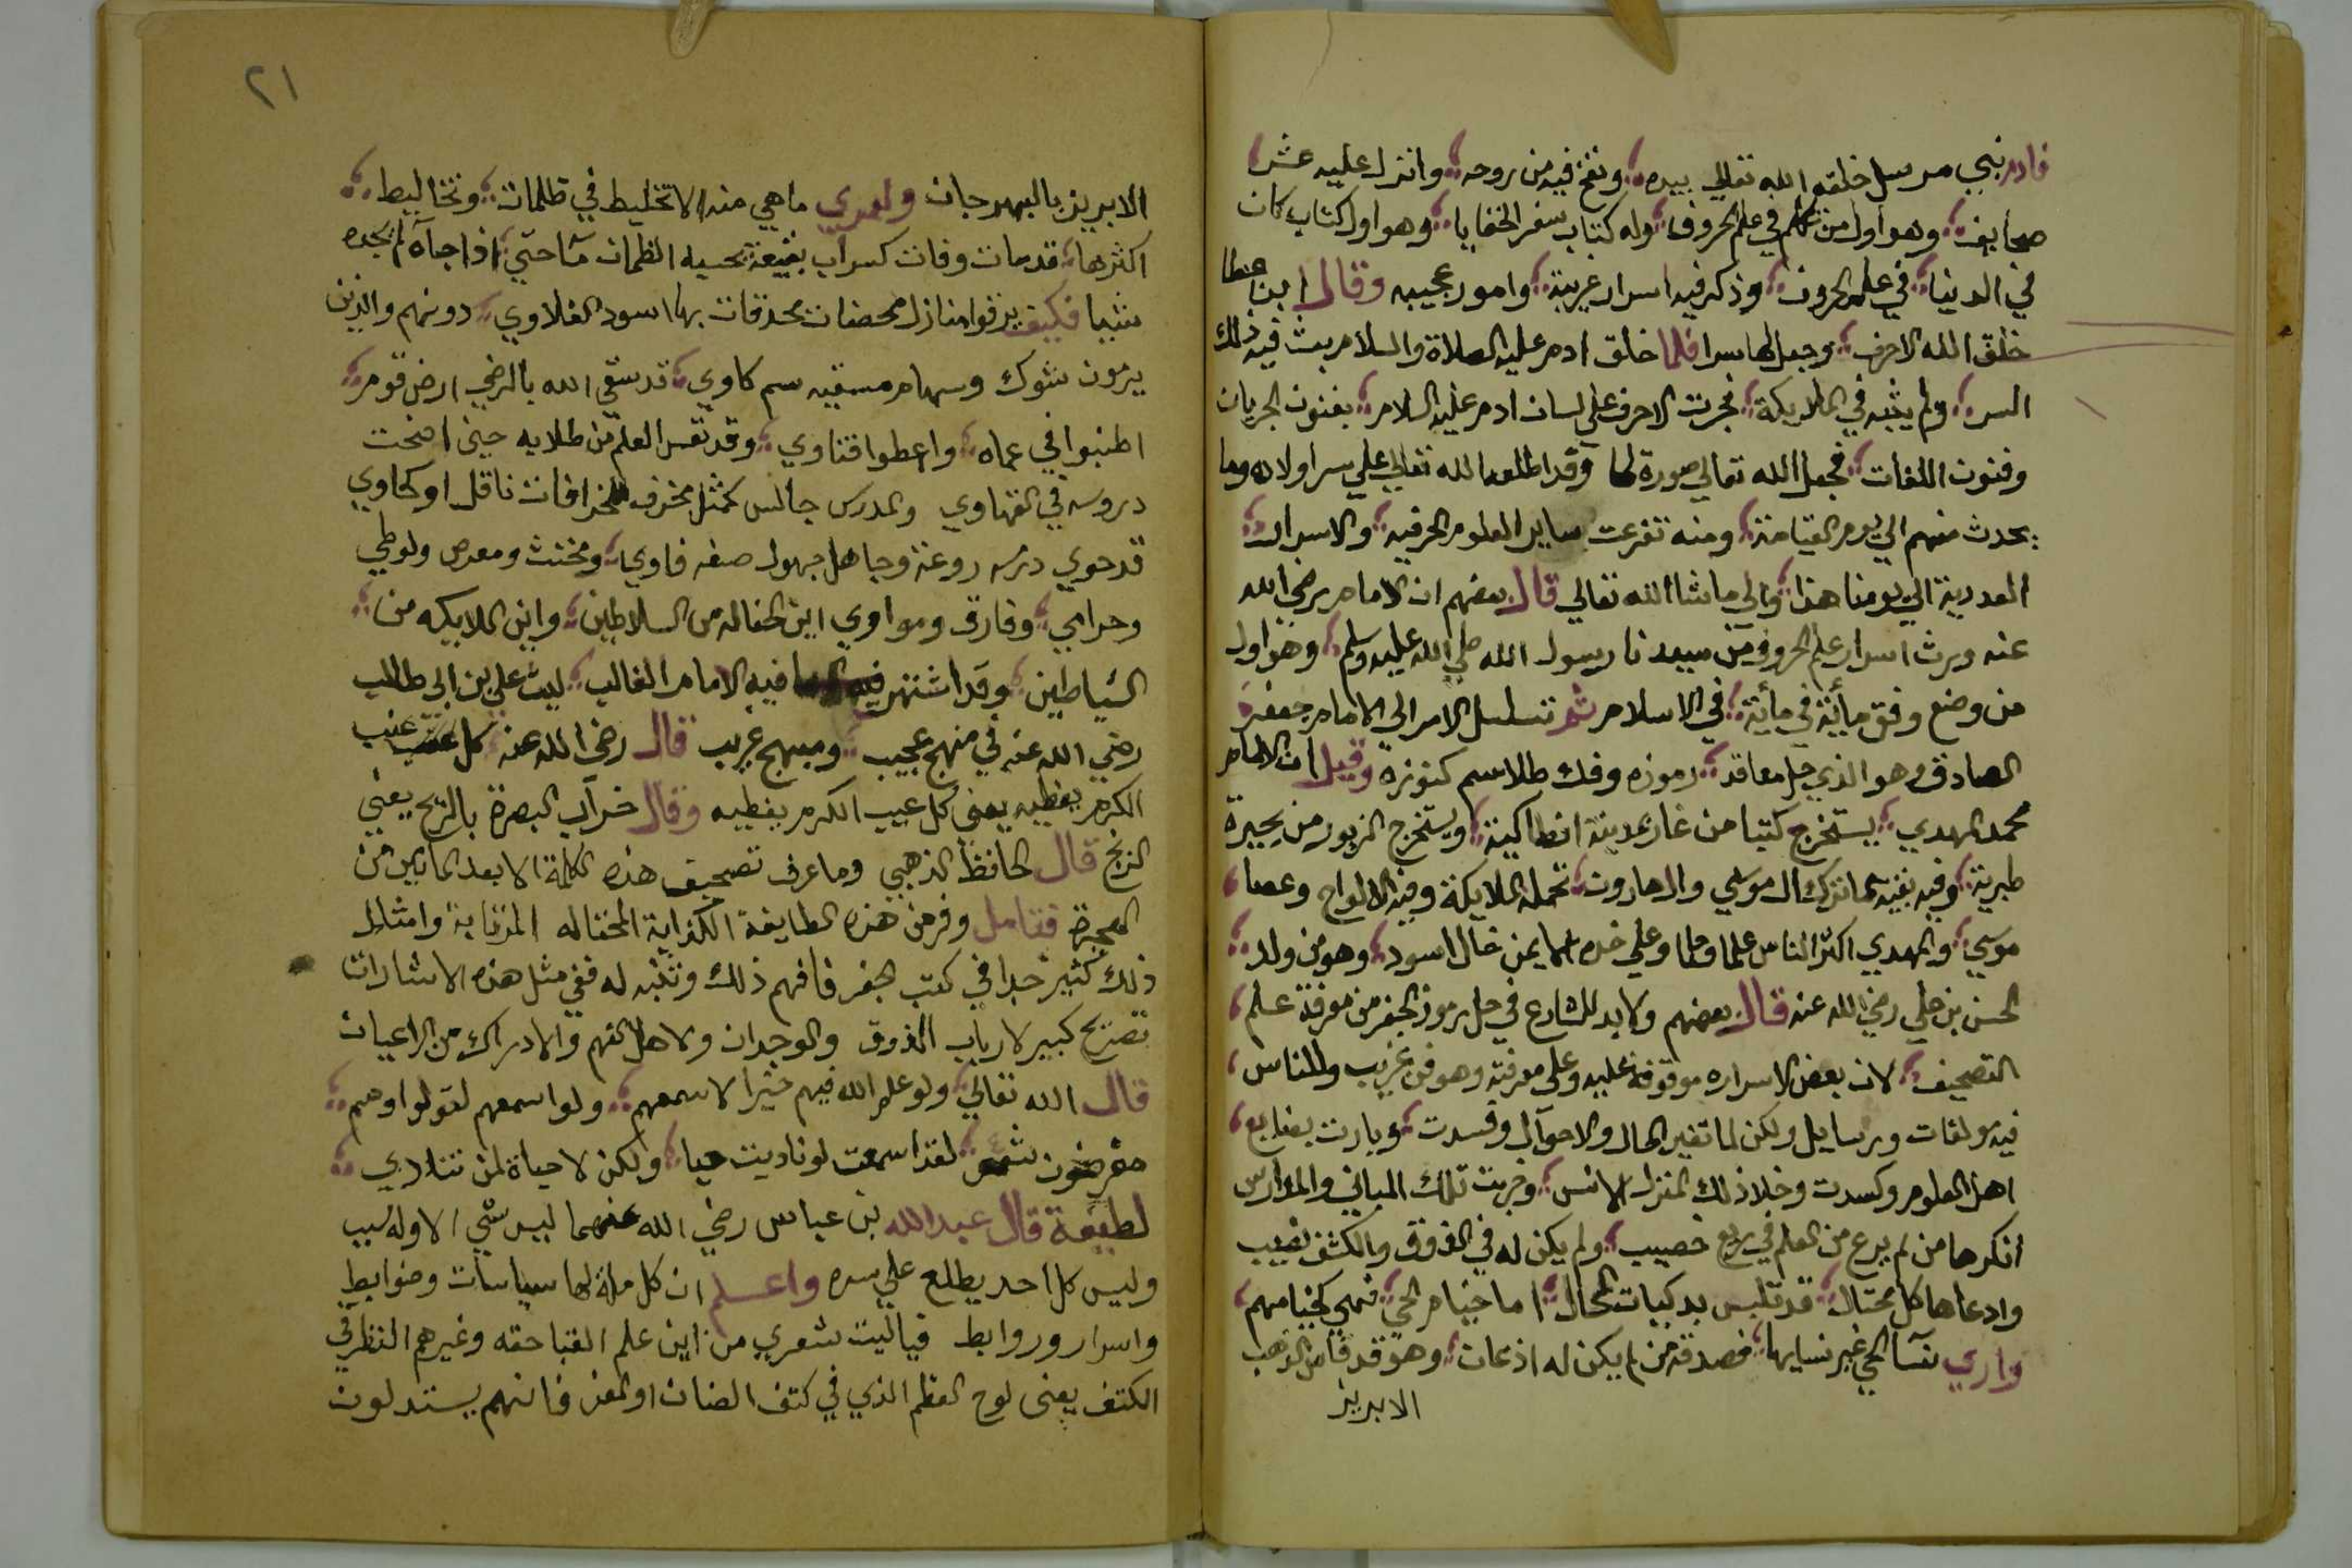 فادم نبي مرسل خلقه الله تعالي بيده ونفخ فيه من روحه وانزل عليه عشر
صحايف وهو اول من تكلم في علم الحروف وله كتاب سفر الخفايا وهو اول كتاب كان
في الدنيا في علم الحروف وذكر فيه اسرار غريبة وامور عجيبه وقال ابن عطا
خلق الله الاحرف وجعل لها سرا فلما خلق ادم عليه الصلاة والسلام بث فيه ذلك
السر ولم يبثه في الملايكة فجرت الاحرف علي لسان ادم عليه السلام بفنون الجريان
وفنون اللغات فجعل الله تعالي صورة لها وقد اطلعه الله تعالي علي سر اولاده وما
يحدث منهم الي يوم القيامة ومنه تفرعت ساير العلوم الحرفيه والاسرار
العددية الي يومنا هذا والي ما شا الله تعالي قال بعضهم ان الامام رضي الله
عنه ورث اسرار علم الحروف من سيدنا رسول الله صلي الله عليه وسلم وهو اول
من وضع وفق مأية في مأية في الاسلام ثم تسلسل الامر الى الامام جعفر
الصادق وهو الذي حل معاقد رموزه وفك طلاسم كنوزه وقيل ان الامام
محمد المهدي يستخرج كتبا من غار بمدينة انطاكية ويستخرج الزبور من بحيرة
طبرية وفيه بقية مما ترك ال موسي وال هارون تحمله الملايكة وفيه الالواح وعصا
موسي والمهدي اكثر الناس علما وحلما وعلي خده الايمن خال اسود وهو من ولد
الحسن بن علي رضي الله عنه قال بعضهم ولا بد للشارع في حل رموز الجفر من معرفة علم
التصحيف لان بعض الاسراره موقوفة عليه وعلى معرفته وهو فن غريب وللناس
فيه مولفات ورسايل ولكن لما تغير الحال والاحوال وفسدت وبارت بضايع
اهل العلوم وكسدت وخلا ذلك المنزل الانس وخربت تلك المباني والمدارس
انكرها من لم يرع من العلم في ربع خصيب ولم يكن له في الذوق والكشف نصيب
وادعاها كل محتال قد تلبس بدكيات المحال اما خيام الحي فهي كخيامهم
واري نسآ الحي غير نسايها فصدقه من لم يكن له اذعان وهو قد قاس الذهب
الابريز
٢١
الابريز بالبهرجان ولعمري ما هي منه الا تخليط في ظلمات وتخاليط
اكثرها قد مات وفات كسراب بقيعة يحسبه الظمان مآ حتي اذا جآه لم يجده
شيا فكيف يرقوا منازل محصنات محدقات بها اسود الغلاوي دونهم والذين
يرمون بشوك وسهام مسقيه سم كاوي قد سقي الله بالرضي ارض قوم
اطنبوا في عماه واعطوا فتاوي وقد تعس العلم من طلابه حين اضحت
دروسه في القهاوي والمدرس جالس كمثل مخرف لخرافات ناقل او حكاوي
قد حوي درسه روعة وجاهل جهول صفه فاوي ومخنث ومعرص ولوطي
وحرامي وفارق ومواوي اين الحثاله من السلاطين واين الملايكه من
الشياطين وقد اشتهر فيه الامام الغالب ليث علي بن ابى طالب
رضي الله عنه في منهج عجيب ومبهج غريب قال رضى الله عنه كل عنب
الكرم يعطيه يعنى كل عيب الكرم يغطيه وقال خرآب البصرة بالريح يعني
الزنج قال الحافظ الذهبي وما عرف تصحيف هذه الكلمة الا بعد المأتين من
الهجرة فتامل وفر من هذه الطايفة الكذابة المحتاله المرتابة وامثال
ذلك كثير جدا في كتب الجفر فافهم ذلك وتنبه له ففي مثل هذه الاشارات
تصريح كبير لارباب الذوق والوجدان ولاهل الفهم والادراك من الاعيان
قال الله تعالي ولو علم الله فيهم خيرا لاسمعهم ولو اسمعهم لتولوا وهم
معرضون شعر لقد اسمعت لو ناديت حيا ولكن لا حياة لمن تنادي
لطيفة قال عبد الله بن عباس رضي الله عنهما ليس شي الا وله سبب
وليس كل احد يطلع علي سره واعلم ان كل ملة لها سياسات وضوابط
واسرار وروابط فياليت شعري من اين علم القباحقه وغيرهم النظر في
الكتف يعنى لوح العظم الذي في كتف الضان او المعز فانهم يستدلون